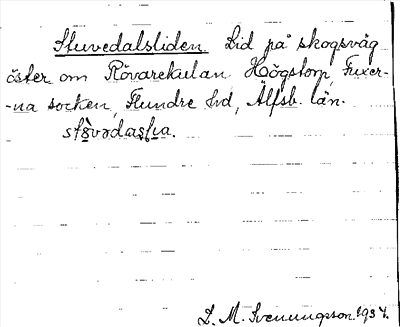 Stuvedalsliden Lid på skogsväg
öster om Rövarekulan Högstorp, Fuxer-
-na socken, Flundre hd, Älfsb. län.
L. M. Svenungsson 1934.